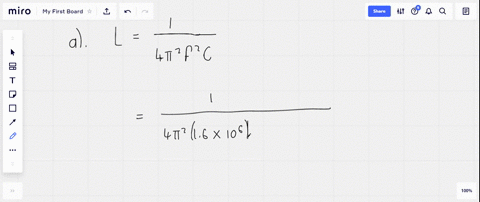 miro My First Board Share
a). L = 1
4π²f²C
= 1
4π²(1.6 × 10⁶)
100%